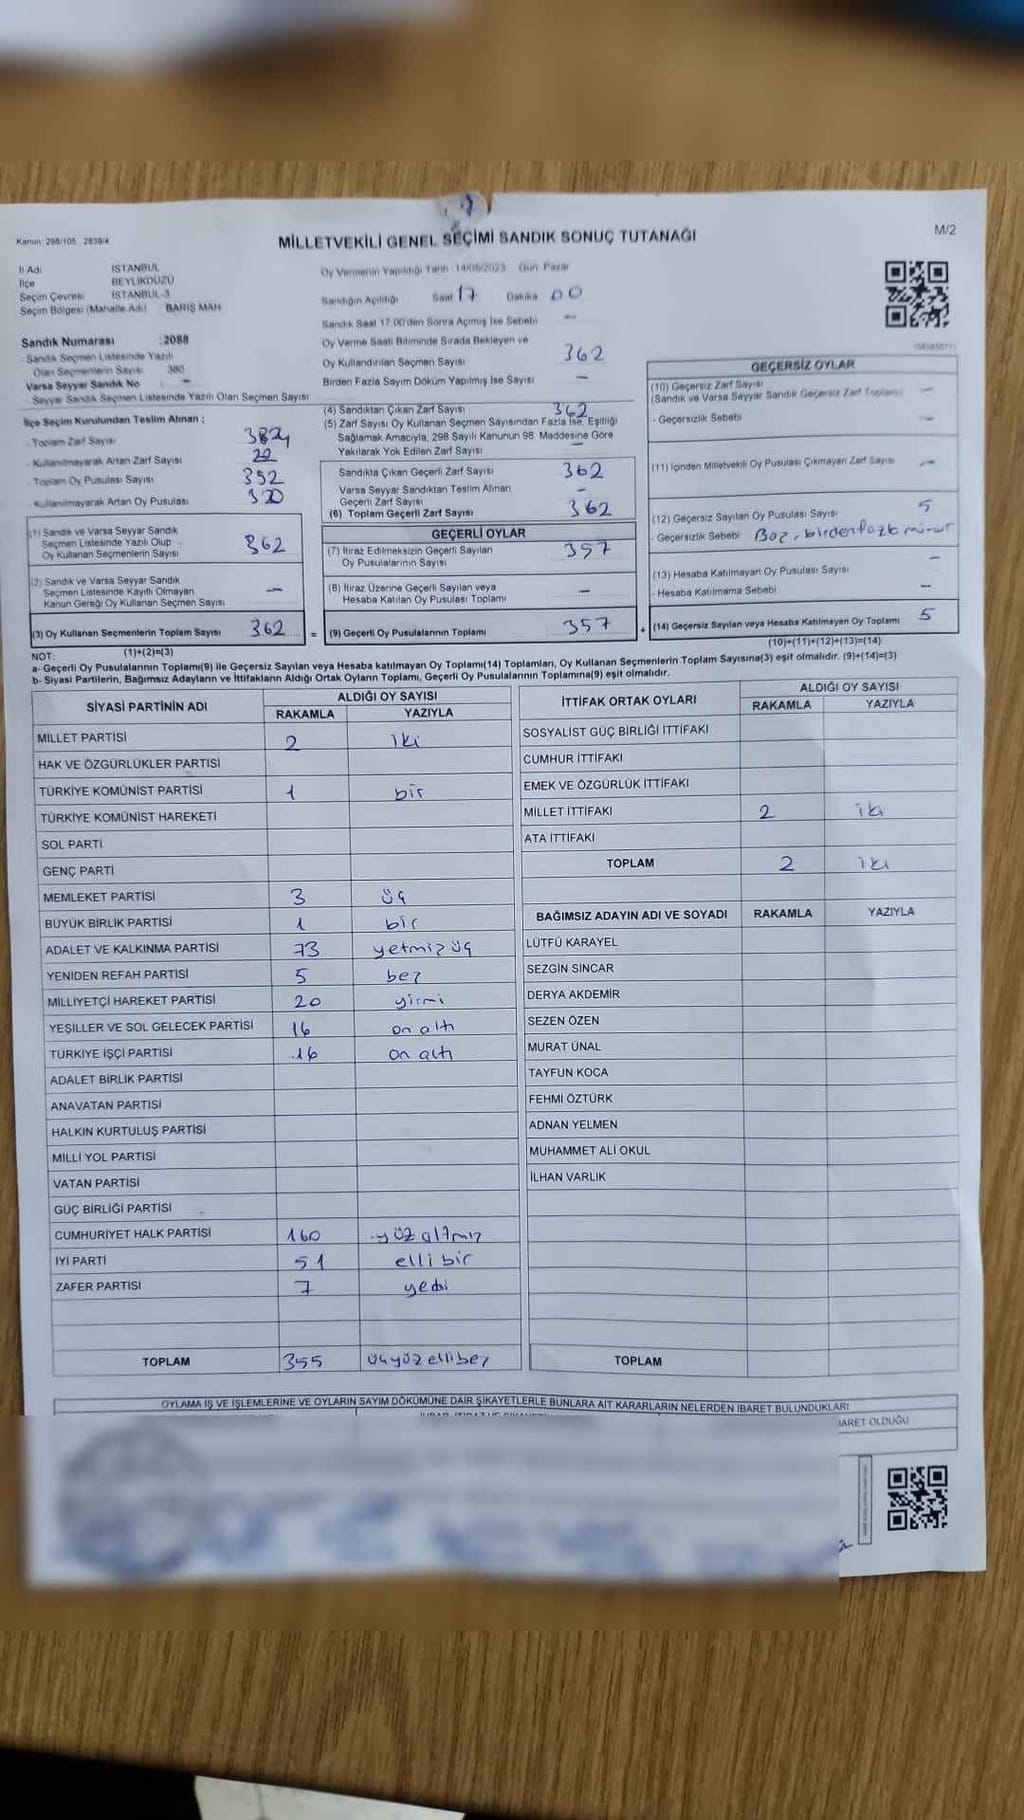 Kanun: 298/105 2839/4
MİLLETVEKİLİ GENEL SEÇİMİ SANDIK SONUÇ TUTANAĞI
M/2
İl Adı İSTANBUL
İlçe BEYLİKDÜZÜ
Seçim Çevresi İSTANBUL-3
Seçim Bölgesi (Mahalle Adı) BARIŞ MAH
Oy Vermenin Yapıldığı Tarih 14/05/2023 Gün Pazar
Sandığın Açıldığı Saat 17 Dakika 00
Sandık Saat 17.00'den Sonra Açımış İse Sebebi —
Oy Verme Saati Bitiminde Sırada Bekleyen ve
Oy Kullandırılan Seçmen Sayısı 362
Birden Fazla Sayım Döküm Yapılmış İse Sayısı —
Sandık Numarası : 2088
Sandık Seçmen Listesinde Yazılı
Olan Seçmenlerin Sayısı 380
Varsa Seyyar Sandık No : —
Seyyar Sandık Seçmen Listesinde Yazılı Olan Seçmen Sayısı
İlçe Seçim Kurulundan Teslim Alınan ;
- Toplam Zarf Sayısı
- Kullanılmayarak Artan Zarf Sayısı 22
- Toplam Oy Pusulası Sayısı
- Kullanılmayarak Artan Oy Pusulası
(1) Sandık ve Varsa Seyyar Sandık
Seçmen Listesinde Yazılı Olup
Oy Kullanan Seçmenlerin Sayısı 362
(2) Sandık ve Varsa Seyyar Sandık
Seçmen Listesinde Kayıtlı Olmayan
Kanun Gereği Oy Kullanan Seçmen Sayısı —
(3) Oy Kullanan Seçmenlerin Toplam Sayısı 362 =
(1)+(2)=(3)
(4) Sandıktan Çıkan Zarf Sayısı 362
(5) Zarf Sayısı Oy Kullanan Seçmen Sayısından Fazla İse, Eşitliği
Sağlamak Amacıyla, 298 Sayılı Kanunun 98. Maddesine Göre
Yakılarak Yok Edilen Zarf Sayısı —
Sandıkta Çıkan Geçerli Zarf Sayısı 362
Varsa Seyyar Sandıktan Teslim Alınan
Geçerli Zarf Sayısı —
(6) Toplam Geçerli Zarf Sayısı 362
GEÇERLİ OYLAR
(7) İtiraz Edilmeksizin Geçerli Sayılan
Oy Pusulalarının Sayısı 357
(8) İtiraz Üzerine Geçerli Sayılan veya
Hesaba Katılan Oy Pusulası Toplamı —
(9) Geçerli Oy Pusulalarının Toplamı 357 +
GEÇERSİZ OYLAR
(10) Geçersiz Zarf Sayısı —
(Sandık ve Varsa Seyyar Sandık Geçersiz Zarf Toplamı)
- Geçersizlik Sebebi —
(11) İçinden Milletvekili Oy Pusulası Çıkmayan Zarf Sayısı —
(12) Geçersiz Sayılan Oy Pusulası Sayısı 5
- Geçersizlik Sebebi Boş, birden fazla mühür
(13) Hesaba Katılmayan Oy Pusulası Sayısı —
- Hesaba Katılmama Sebebi —
(14) Geçersiz Sayılan veya Hesaba Katılmayan Oy Toplamı 5
(10)+(11)+(12)+(13)=(14)
NOT:
a- Geçerli Oy Pusulalarının Toplamı(9) ile Geçersiz Sayılan veya Hesaba katılmayan Oy Toplamı(14) Toplamları, Oy Kullanan Seçmenlerin Toplam Sayısına(3) eşit olmalıdır. (9)+(14)=(3)
b- Siyasi Partilerin, Bağımsız Adayların ve İttifakların Aldığı Ortak Oyların Toplamı, Geçerli Oy Pusulalarının Toplamına(9) eşit olmalıdır.
SİYASİ PARTİNİN ADI ALDIĞI OY SAYISI
RAKAMLA YAZIYLA
MİLLET PARTİSİ 2 iki
HAK VE ÖZGÜRLÜKLER PARTİSİ
TÜRKİYE KOMÜNİST PARTİSİ 1 bir
TÜRKİYE KOMÜNİST HAREKETİ
SOL PARTİ
GENÇ PARTİ
MEMLEKET PARTİSİ 3 üç
BÜYÜK BİRLİK PARTİSİ 1 bir
ADALET VE KALKINMA PARTİSİ 73 yetmiş üç
YENİDEN REFAH PARTİSİ 5 beş
MİLLİYETÇİ HAREKET PARTİSİ 20 yirmi
YEŞİLLER VE SOL GELECEK PARTİSİ 16 on altı
TÜRKİYE İŞÇİ PARTİSİ 16 on altı
ADALET BİRLİK PARTİSİ
ANAVATAN PARTİSİ
HALKIN KURTULUŞ PARTİSİ
MİLLİ YOL PARTİSİ
VATAN PARTİSİ
GÜÇ BİRLİĞİ PARTİSİ
CUMHURİYET HALK PARTİSİ 160 yüz altmış
İYİ PARTİ 51 elli bir
ZAFER PARTİSİ 7 yedi
TOPLAM 355 üçyüz elli beş
İTTİFAK ORTAK OYLARI ALDIĞI OY SAYISI
RAKAMLA YAZIYLA
SOSYALİST GÜÇ BİRLİĞİ İTTİFAKI
CUMHUR İTTİFAKI
EMEK VE ÖZGÜRLÜK İTTİFAKI
MİLLET İTTİFAKI 2 iki
ATA İTTİFAKI
TOPLAM 2 iki
BAĞIMSIZ ADAYIN ADI VE SOYADI RAKAMLA YAZIYLA
LÜTFÜ KARAYEL
SEZGİN SİNCAR
DERYA AKDEMİR
SEZEN ÖZEN
MURAT ÜNAL
TAYFUN KOCA
FEHMİ ÖZTÜRK
ADNAN YELMEN
MUHAMMET ALİ OKUL
İLHAN VARLIK
TOPLAM
OYLAMA İŞ VE İŞLEMLERİNE VE OYLARIN SAYIM DÖKÜMÜNE DAİR ŞİKAYETLERLE BUNLARA AİT KARARLARIN NELERDEN İBARET BULUNDUKLARI
BARET OLDUĞU